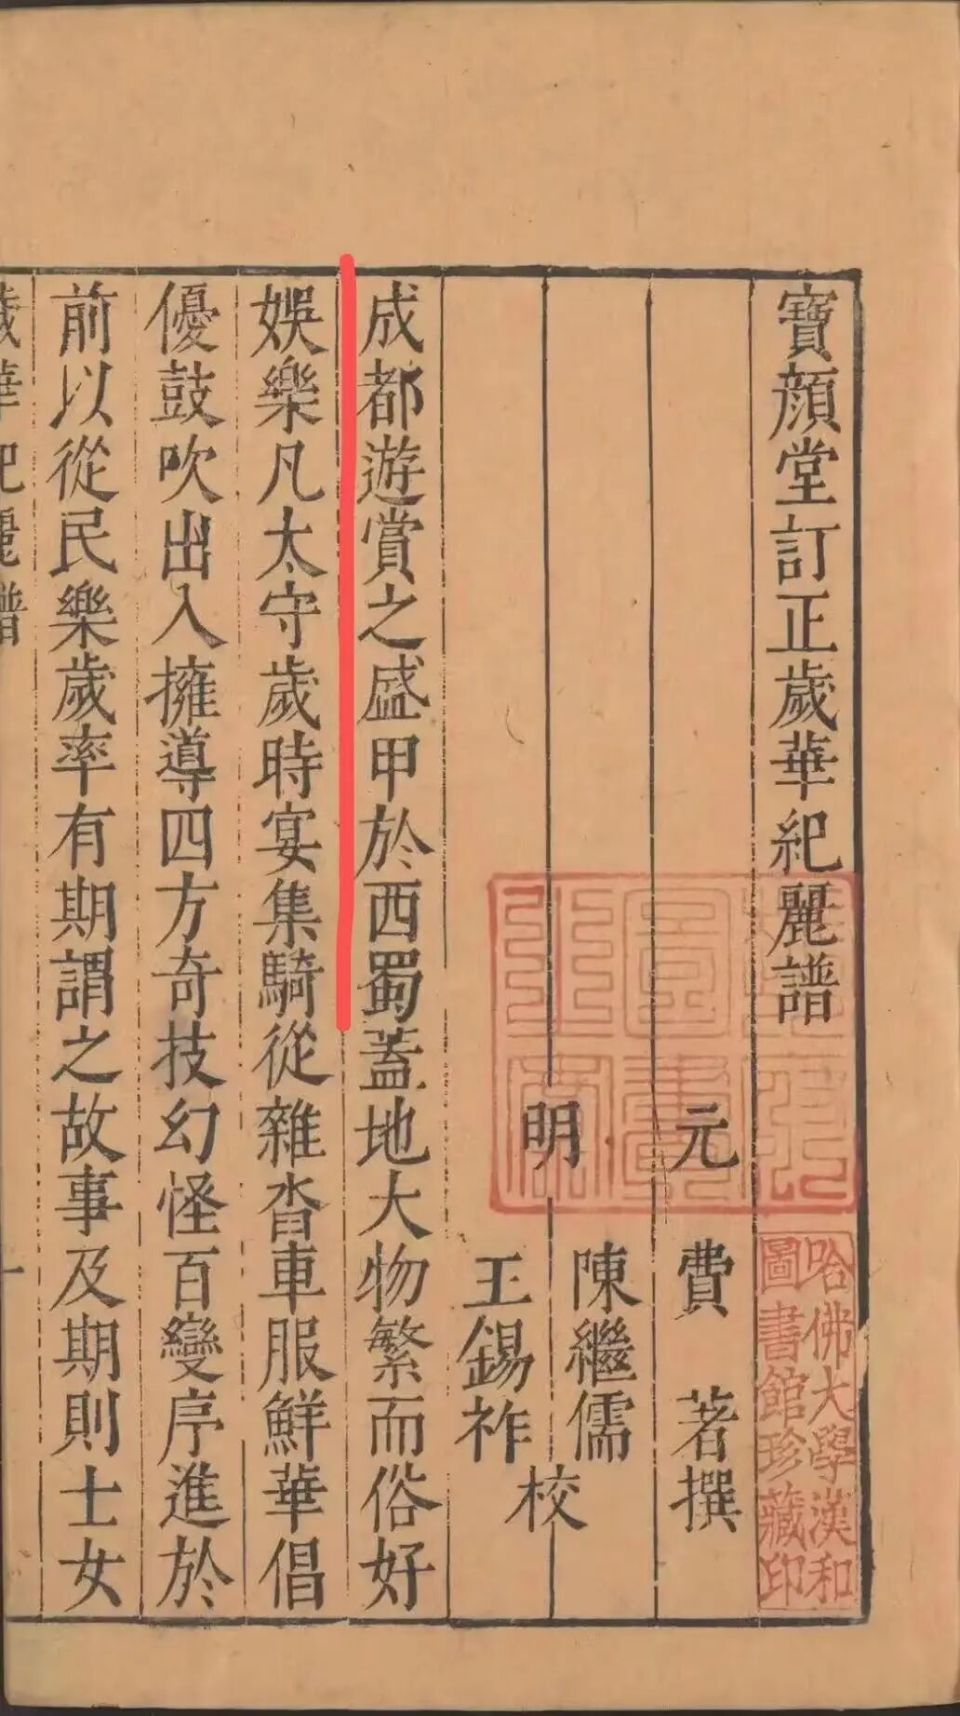 寶顔堂訂正歲華紀麗譜
元 費 著撰
明 陳繼儒
王錫祚 校
成都遊賞之盛甲於西蜀蓋地大物繁而俗好
娛樂凡太守歲時宴集騎從雜沓車服鮮華倡
優鼓吹出入擁導四方奇技幻怪百變序進於
前以從民樂歲率有期謂之故事及期則士女
歲華紀麗譜
一
哈佛大學漢和
圖書館珍藏印